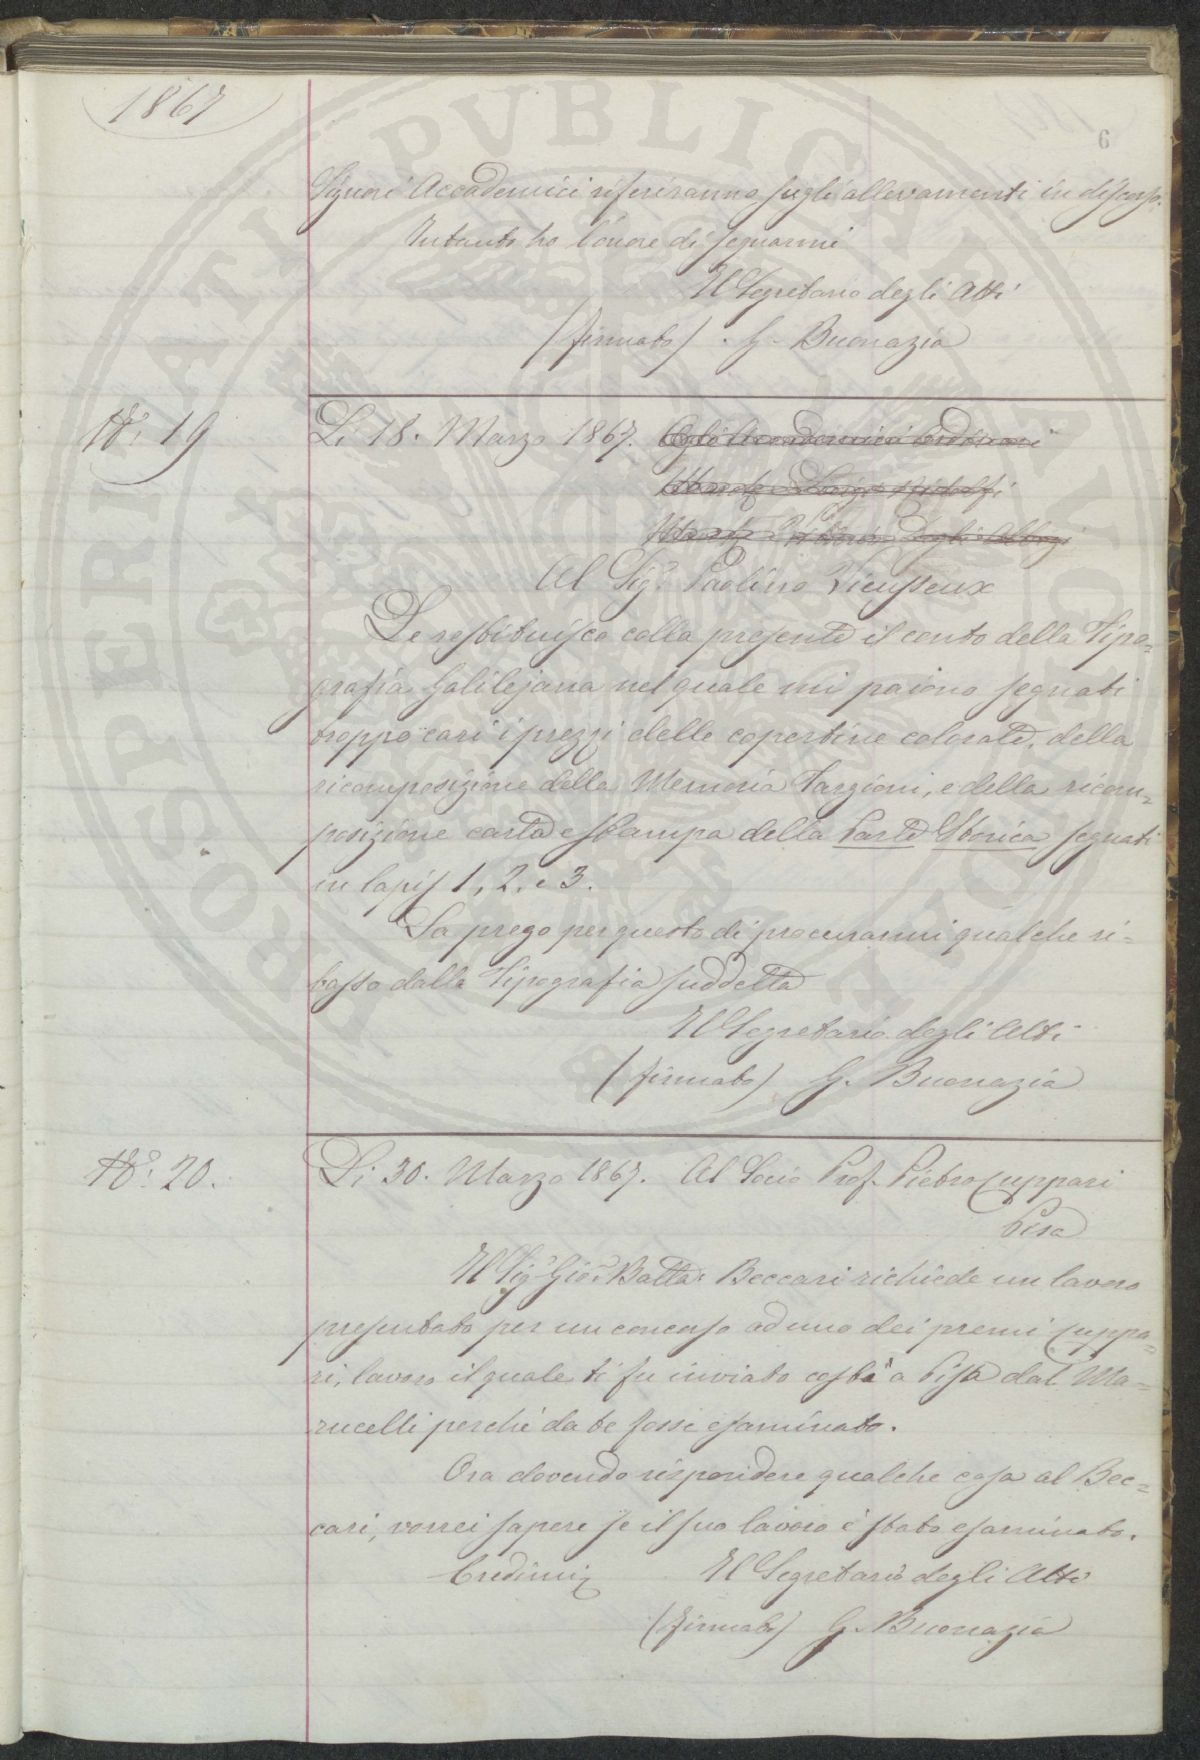 1867
6
Signori Accademici riferiranno sugli allevamenti in discorso.
Intanto ho l'onore di segnarmi
Il Segretario degli Atti
(firmato) G. Buonazia
N°. 19
Li 18. Marzo 1867. Agli Accademici Ordinari
March. Luigi Ridolfi
March. Vittorio Degli Albizi
Al Sig. Paolino Vieusseux
Le restituisco colla presente il conto della Tipo=
grafia Galilejana nel quale mi paiono segnati
troppo cari i prezzi delle copertine colorate, della
ricomposizione della Memoria Targioni, e della ricom=
posizione carta e stampa della Parte Storica segnati
in lapis 1, 2, e 3.
La prego per questo di procurarmi qualche ri=
basso dalla Tipografia suddetta
Il Segretario degli Atti
(firmato) G. Buonazia
N°. 20.
Li 30. Marzo 1867. Al Socio Prof. Pietro Cuppari
Pisa
Il Sig. Gio. Batta. Beccari richiede un lavoro
presentato per un concorso ad uno dei premi Cuppa=
ri, lavoro il quale ti fu inviato costà a Pisa dal Ma=
rucelli perché da te fosse esaminato.
Ora dovendo rispondere qualche cosa al Bec=
cari, vorrei sapere se il suo lavoro è stato esaminato.
Credimi Il Segretario degli Atti
(firmato) G. Buonazia